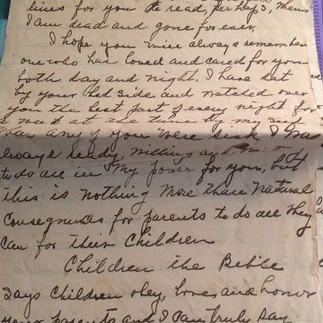 lines for you to read, perhaps, when
I am dead and gone for ever.
I hope you will always remember
one who has loved and cared for you
both day and night. I have set
by your bed side and watched over
you the best part of every night for
a at the time by
any of you were sick I was
always ready, willing and
to do all in my power for you, but
this is nothing more than natural
consequences for parents to do all they
can for their Children
Children the Bible
says Children obey, love and honor
your parents and I can truly say